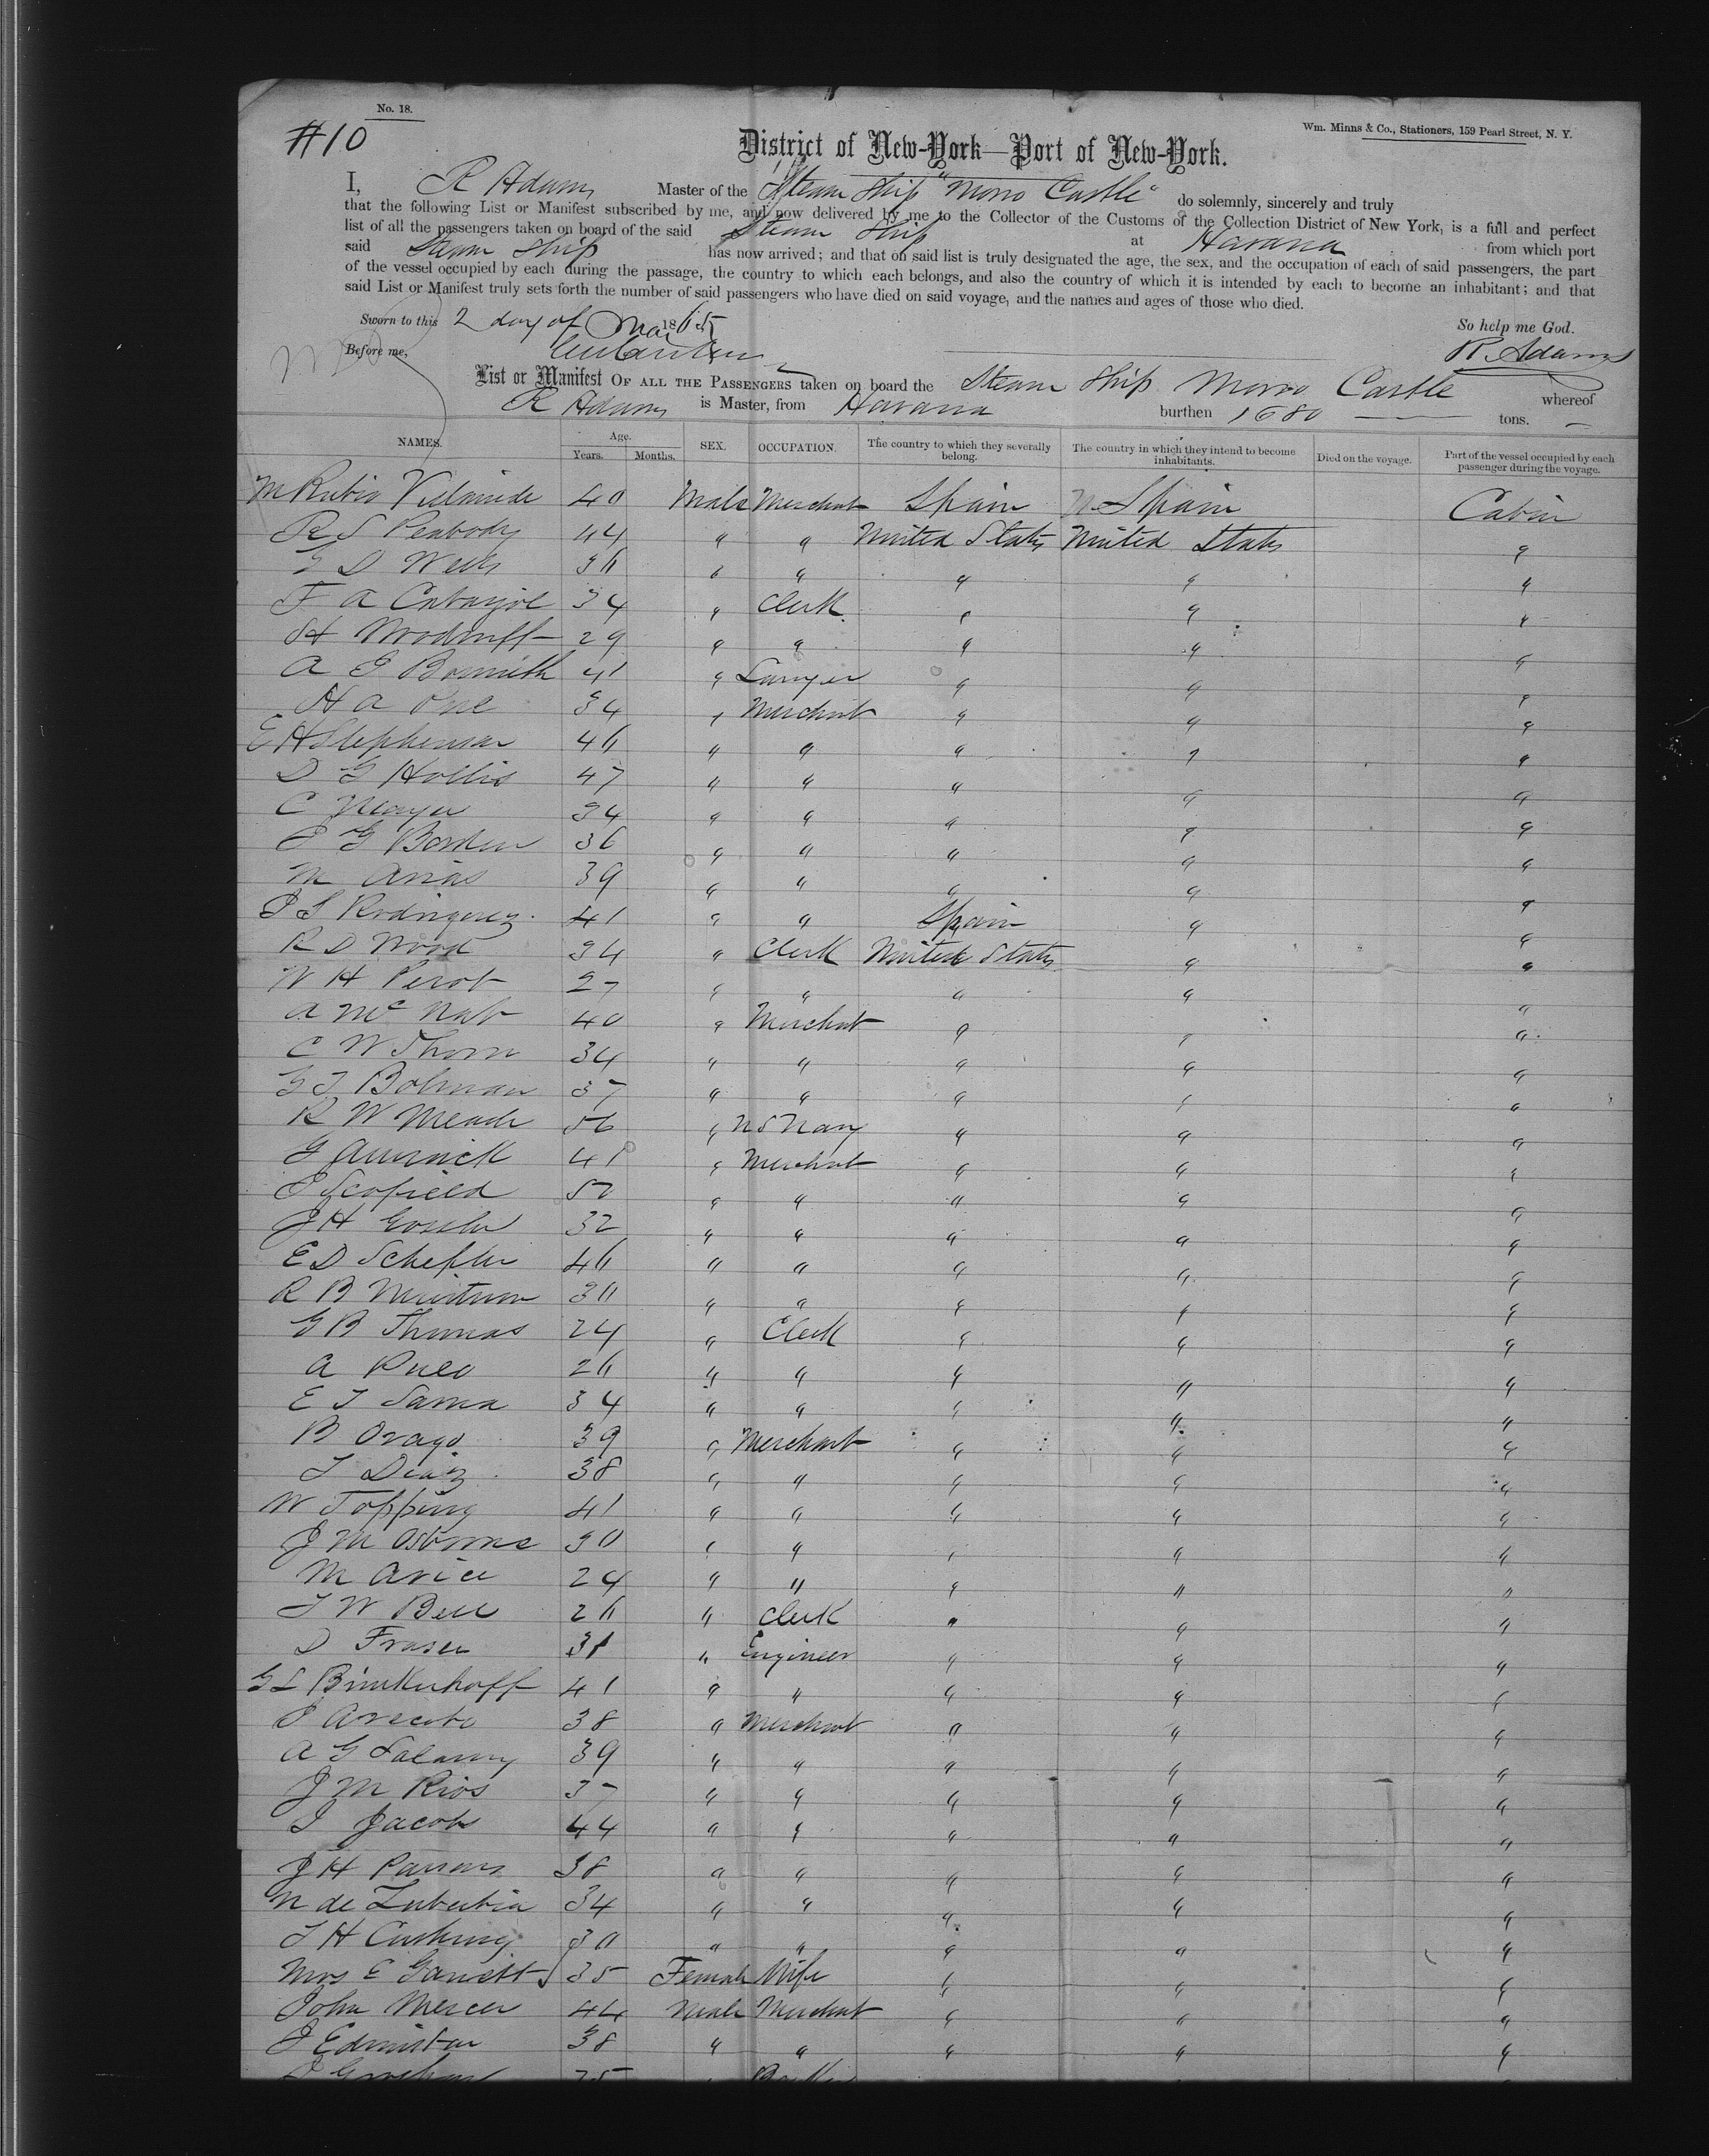 No. 18.
#10
Wm. Minns & Co., Stationers, 159 Pearl Street, N. Y.
District of New-York—Port of New-York.
I, R Adams Master of the Steam Ship "Morro Castle" do solemnly, sincerely and truly
that the following List or Manifest subscribed by me, and now delivered by me to the Collector of the Customs of the Collection District of New York, is a full and perfect
list of all the passengers taken on board of the said Steam Ship at Havana from which port
said Steam Ship has now arrived; and that on said list is truly designated the age, the sex, and the occupation of each of said passengers, the part
of the vessel occupied by each during the passage, the country to which each belongs, and also the country of which it is intended by each to become an inhabitant; and that
said List or Manifest truly sets forth the number of said passengers who have died on said voyage, and the names and ages of those who died.
Sworn to this 2 day of Mar 1865 So help me God.
Before me, R. Adams
List or Manifest OF ALL THE PASSENGERS taken on board the Steam Ship Morro Castle whereof
R Adams is Master, from Havana burthen 1680 tons.
NAMES. Age. Years. Months. SEX. OCCUPATION. The country to which they severally belong. The country in which they intend to become inhabitants. Died on the voyage. Part of the vessel occupied by each passenger during the voyage.
M Rubio 40 Male Merchant Spain Spain Cabin
R S Peabody 44 " " United States United States "
D Wells 36 " " " " "
F A 34 " Clerk " " "
H Woodruff 29 " " " " "
A 41 " Lawyer " " "
H A 34 " Merchant " " "
E H Stephenson 46 " " " " "
D G Hollis 47 " " " " "
C Meayer 34 " " " " "
G Borden 36 " " " " "
M Arias 39 " " " " "
S Rodriguez 41 " " Spain " "
R D Wood 34 " Clerk United States " "
W H Perot 27 " " " " "
A McNab 40 " Merchant " " "
C W Thorn 34 " " " " "
G T Bolman 37 " " " " "
R W Meade 56 " U S Navy " " "
G 41 " Merchant " " "
Scofield 57 " " " " "
J H Gossler 32 " " " " "
E D Schefler 46 " " " " "
R B Minturn 30 " " " " "
G B Thomas 24 " Clerk " " "
A 26 " " " " "
E T Sama 34 " " " " "
B Orago 39 " Merchant " " "
T Diaz 38 " " " " "
W Topping 41 " " " " "
J M Osborne 30 " " " " "
M 24 " " " " "
T W Bell 26 " Clerk " " "
D Fraser 31 " Engineer " " "
G L Brinkerhoff 41 " " " " "
38 " Merchant " " "
A G 39 " " " " "
J M Rios 37 " " " " "
Jacobs 44 " " " " "
J H Parsons 38 " " " " "
N de 34 " " " " "
T H Cushing 30 " " " " "
Mrs E Garrett 35 Female Wife " " "
John Mercer 44 Male Merchant " " "
J Edminster 38 " " " " "